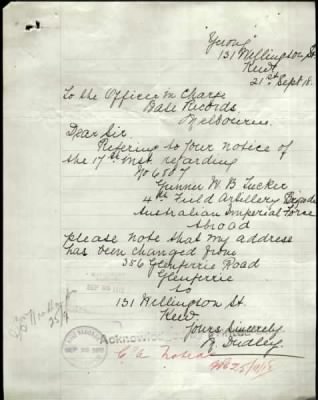 131 Wellington St
Kew.
21st Sept 18.
To the Officer in Charge
Base Records.
Melbourne.
Dear Sir.
Refering to your notice of
the 17th inst. regarding
No 6507
Gunner W. B Tucker
4th Field Artillery Brigade
Australian Imperial Force
Abroad
please note that my address
has been changed from
356 Glenferrie Road
Glenferrie
to
131 Wellington St.
Kew.
Yours Sincerely.
Dudley